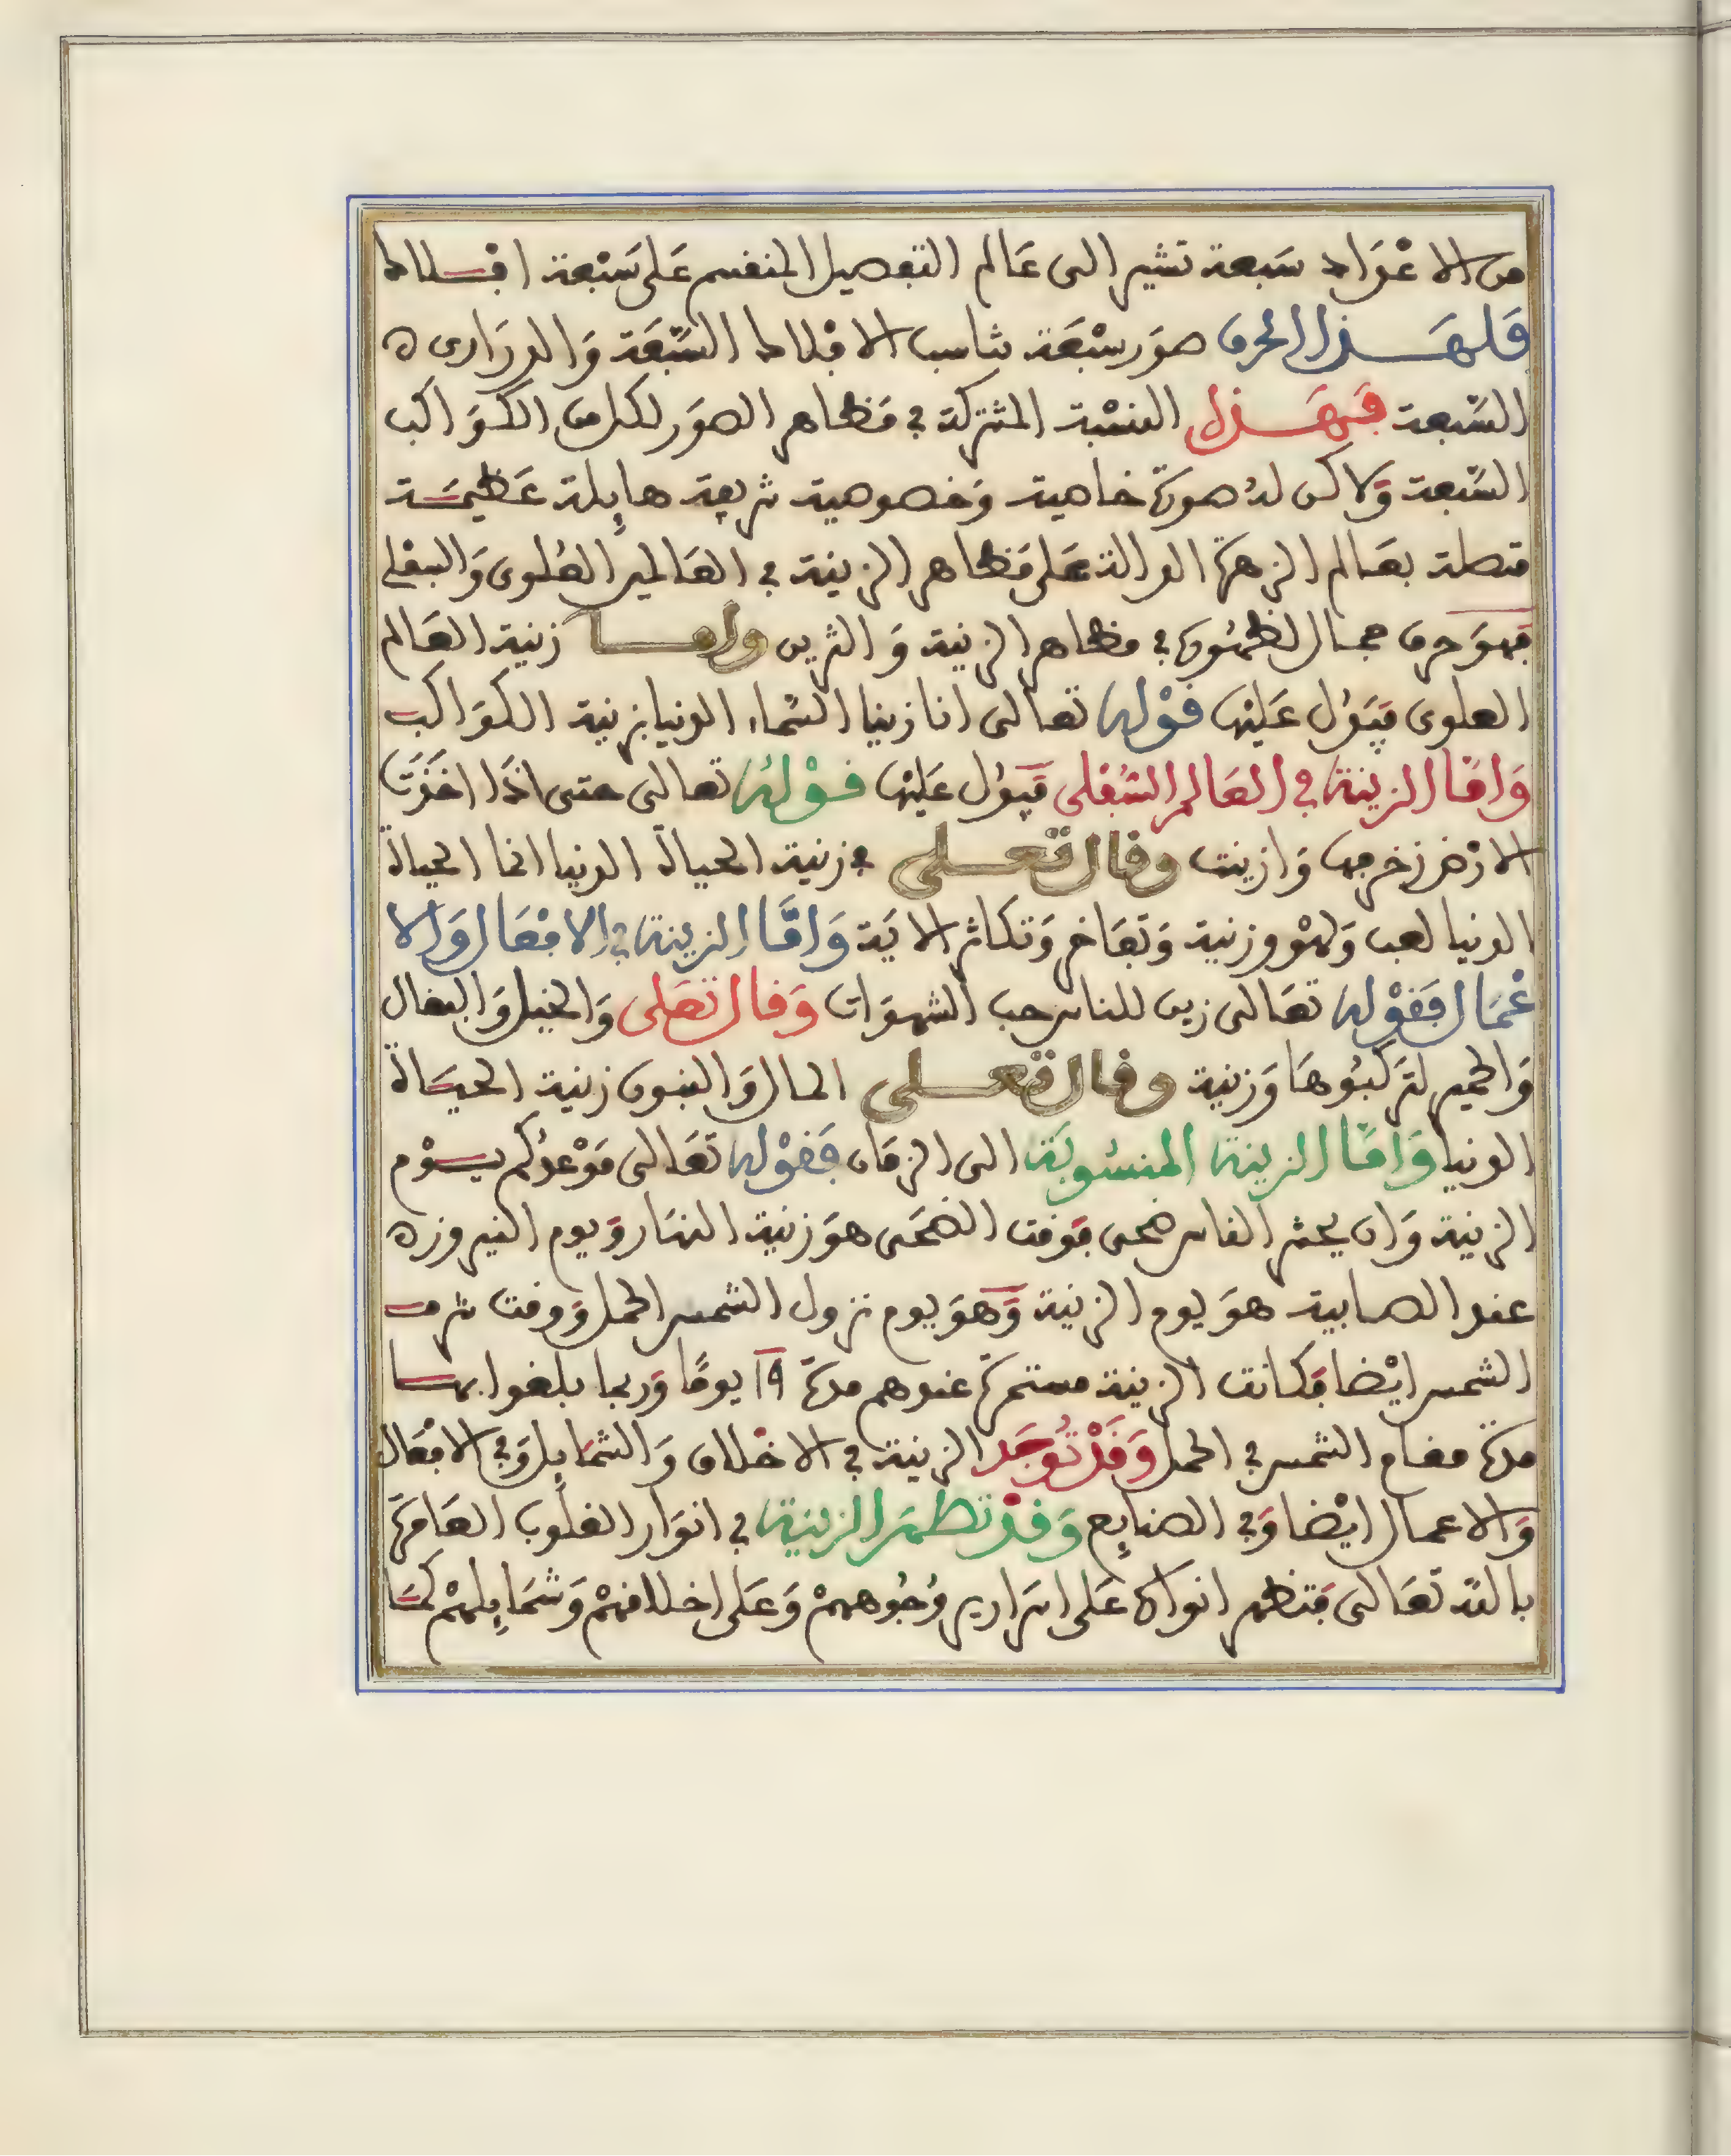 من الاعْدَاد سَبعة تشير الى عَالم التفصيل المنقسم عَلى سَبْعة افــلاك
فَلهَــذا الحرف صوَر سبْعَة تناسب الافْلاك السَّبْعَة وَالدرَارى ه
السَّبعة فَبهَــذا النسْبة المشتركة في مَظاهر الصوَر لكل من الكوَاكب
السَّبعة وَلاكن لهُ صورَة خاصية وَخصوصية شريفة هايِلة عَظيمَــة
متصلة بعَالم الزهرَة الدالة عَلى مَظاهر الزينة في العَالمين العُلوى وَالسفلى
فهوَ حرف جمال لظهُورهَا في مظاهر الزينة وَالتزيين وامــا زينة العَالم
العلوى فيَدُل عَليْهَا قوْله تعَالى انا زينا السَّماء الدنيا بزينة الكوَاكب
وَامَّا الزينة في العَالم السُّفلى فَيَدُل عَليْهَا قوْلهُ تعالى حتى اذَا اخَذَت
الارْض زخرفهَا وَازينت وقال تعــلى في زينة الحياة الدنيا انما الحياة
الدنيا لعب وَلهْو وزينة وَتفَاخر وَتكاثر الايَة وَامَّا الزينة في الافعَال وَالا
عْمَال فَقوْله تعَالى زين للناس حب الشهوَات وَقال تعَلى وَالخيل وَالبغال
وَالحمير لتَركبُوهَا وَزينة وقال تعــلى المال وَالبنون زينة الحيَــاة
الدنيا وَامَّا الزينة المنسُوبَة الى الزمَان فَقوْله تعَالى مَوْعدُكم يــوْم
الزينة وَان يحشر الناس ضحى فوَقت الضحَى هوَ زينة النهَار وَيوم النيروز ه
عند الصابية هوَ يوم الزينة وَهوَ يوم نزول الشمس الحمل وَوقت شرفــ
الشمس ايْضا فكانت الزينة مستمرَة عندهم مدَة ١٩ يومًا وَربما بلغوا بهــا
مدَة مقام الشمس في الحمل وَقَدْ تُوجَد الزينة في الاخْلاق وَالشمَايِل وَفي الافعَال
وَالاعمال ايْضا وَفي الصنايِع وَقدْ تظهَر الزينة في انوَار القلُوب العَامرَة
بالله تعَالى فَتظهر انوارهَا عَلى اسَارير وُجُوههمْ وَعَلى اخلاقهمْ وَشمَايِلهمْ كمَــا